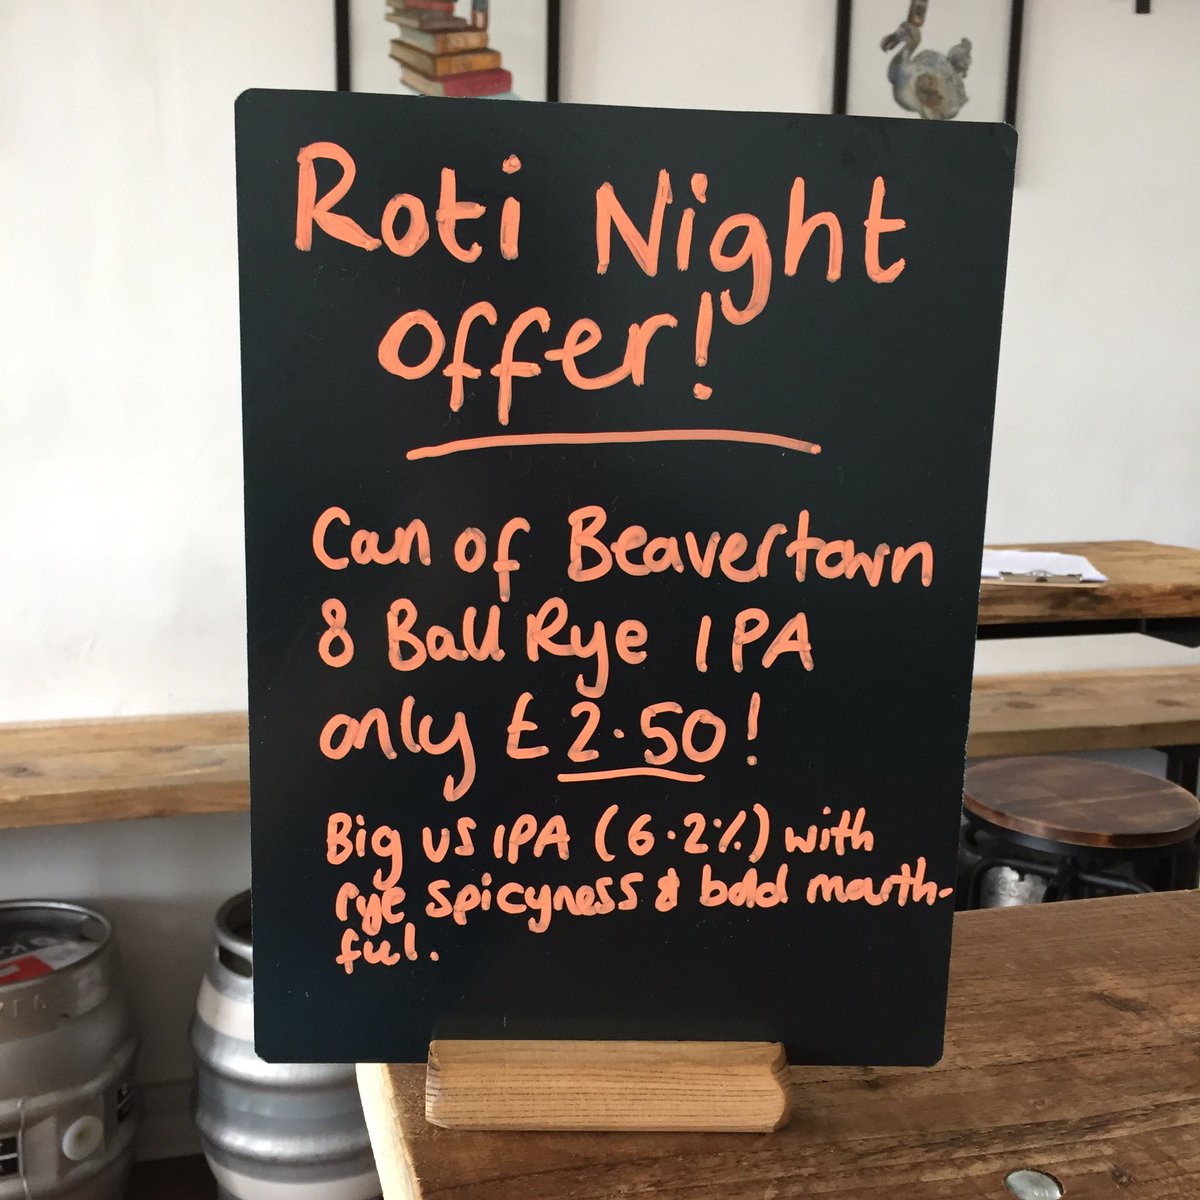 Roti Night
offer!
Can of Beavertown
8 Ball Rye IPA
only £2.50!
Big US IPA (6.2%) with
rye spicyness & bold mouth-
ful.